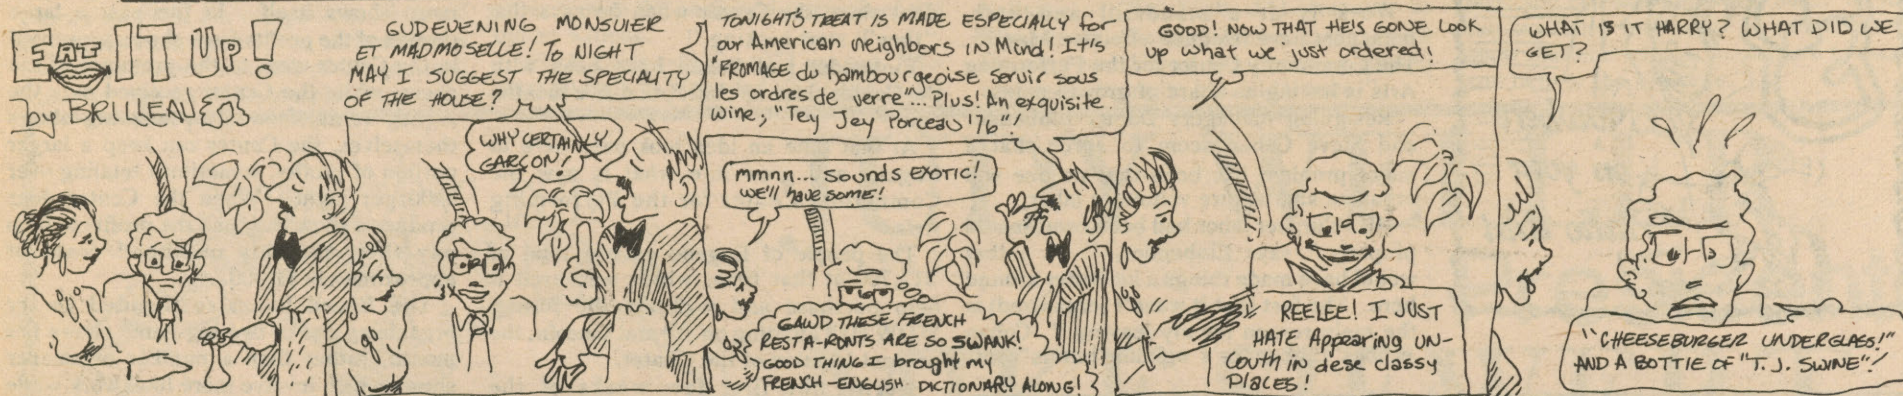 EAT IT UP!
by BRILLEAUX
GUDEVENING MONSUIER
ET MADMOSELLE! TO NIGHT
MAY I SUGGEST THE SPECIALITY
OF THE HOUSE?
WHY CERTAINLY
GARÇON!
TONIGHT'S TREAT IS MADE ESPECIALLY for
our American neighbors IN Mind! It's
"FROMAGE du hambourgeoise servir sous
les ordres de verre"... Plus! An exquisite
wine, "Tey Jey Porceau '76"!
mmnn... SOUNDS EXOTIC!
WE'LL have SOME!
GAWD THESE FRENCH
RESTA-RONTS ARE SO SWANK!
GOOD THING I brought my
FRENCH-ENGLISH DICTIONARY ALONG!
GOOD! NOW THAT HE'S GONE LOOK
up what we just ordered!
REELEE! I JUST
HATE Appearing UN-
Couth in dese classy
PLACES!
WHAT IS IT HARRY? WHAT DID WE
GET?
"CHEESEBURGER UNDERGLASS!"
AND A BOTTLE OF "T.J. SWINE"!